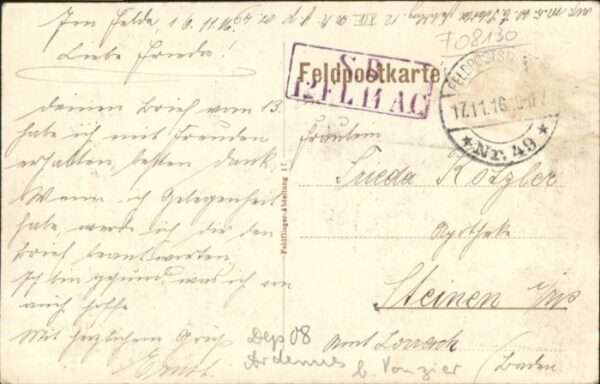 Im Felde, 16.11.16
Liebe Frieda!
deinen Brief vom 13.
habe ich mit Freuden
erhalten besten Dank.
Wenn ich Gelegenheit
habe, werde ich die den
Brief beantworten
Ich bin gesund was ich von
auch hoffe
Mit herzlichem Gruß
Ernst.
708130
Feldpostkarte
S.B.
12 FL 14 AC
FELDPOST
17.11.16
* Nr. 49 *
Feldflieger-Abteilung 17.
Fräulein
Frieda Kotzler
Apotheke
Steinen
Amt Lörrach
(Baden
Dep 08
Ardennes
b. Vouzier